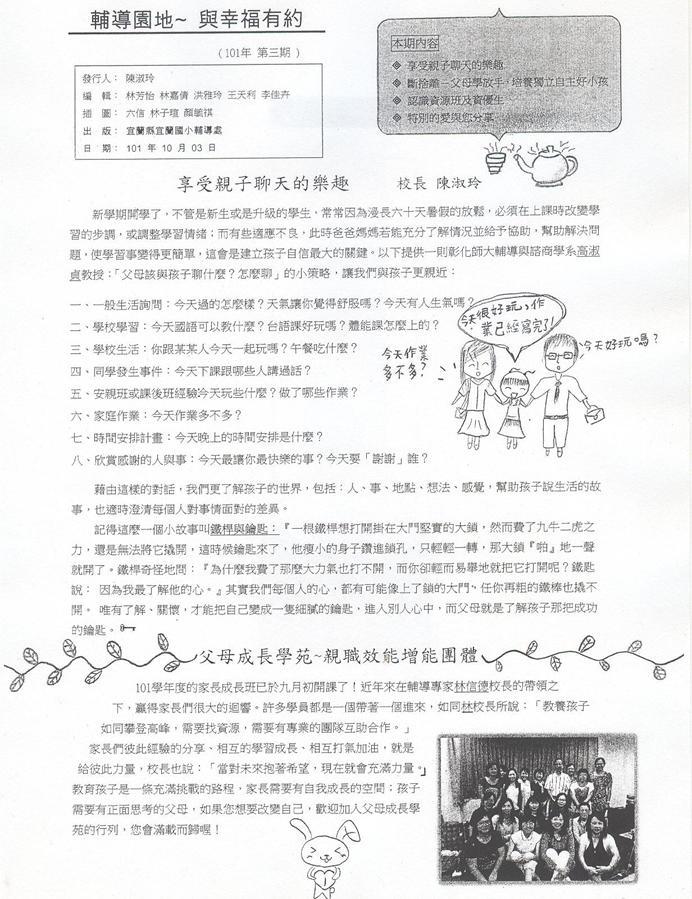 輔導園地~ 與幸福有約
(101年 第三期)
發行人： 陳淑玲
編　輯： 林芳怡 林嘉倩 洪雅玲 王天利 李佳卉
插　圖： 六信 林子瑄 顏毓祺
出　版： 宜蘭縣宜蘭國小輔導處
日　期： 101 年 10 月 03 日
本期內容
◆ 享受親子聊天的樂趣
◆ 斷捨離－父母學放手，培養獨立自主好小孩
◆ 認識資源班及資優生
◆ 特別的愛與您分享
享受親子聊天的樂趣　　校長 陳淑玲
新學期開學了，不管是新生或是升級的學生，常常因為漫長六十天暑假的放鬆，必須在上課時改變學
習的步調，或調整學習情緒；而有些適應不良，此時爸爸媽媽若能充分了解情況並給予協助，幫助解決問
題，使學習事變得更簡單，這會是建立孩子自信最大的關鍵。以下提供一則彰化師大輔導與諮商學系高淑
貞教授：「父母該與孩子聊什麼？怎麼聊」的小策略，讓我們與孩子更親近：
一、一般生活詢問：今天過的怎麼樣？天氣讓你覺得舒服嗎？今天有人生氣嗎？
二、學校學習：今天國語可以教什麼？台語課好玩嗎？體能課怎麼上的？
三、學校生活：你跟某某人今天一起玩嗎？午餐吃什麼？
四、同學發生事件：今天下課跟哪些人講過話？
五、安親班或課後班經驗:今天玩些什麼？做了哪些作業？
六、家庭作業：今天作業多不多？
七、時間安排計畫：今天晚上的時間安排是什麼？
八、欣賞感謝的人與事：今天最讓你最快樂的事？今天要「謝謝」誰？
今天很好玩，作
業已經寫完了！
今天作業
多不多？
今天好玩嗎？
藉由這樣的對話，我們更了解孩子的世界，包括：人、事、地點、想法、感覺，幫助孩子說生活的故
事，也適時澄清每個人對事情面對的差異。
記得這麼一個小故事叫鐵桿與鑰匙：『一根鐵桿想打開掛在大門堅實的大鎖，然而費了九牛二虎之
力，還是無法將它撬開，這時候鑰匙來了，他瘦小的身子鑽進鎖孔，只輕輕一轉，那大鎖『啪』地一聲
就開了。鐵桿奇怪地問：『為什麼我費了那麼大力氣也打不開，而你卻輕而易舉地就把它打開呢？鑰匙
說： 因為我最了解他的心。』其實我們每個人的心，都有可能像上了鎖的大門、任你再粗的鐵棒也撬不
開。 唯有了解、關懷，才能把自己變成一隻細膩的鑰匙，進入別人心中，而父母就是了解孩子那把成功
的鑰匙。
父母成長學苑~親職效能增能團體
101學年度的家長成長班已於九月初開課了！近年來在輔導專家林信德校長的帶領之
下，贏得家長們很大的迴響。許多學員都是一個帶著一個進來，如同林校長所說：「教養孩子
如同攀登高峰，需要找資源，需要有專業的團隊互助合作。」
家長們彼此經驗的分享、相互的學習成長、相互打氣加油，就是
給彼此力量，校長也說：「當對未來抱著希望，現在就會充滿力量。」
教育孩子是一條充滿挑戰的路程，家長需要有自我成長的空間；孩子
需要有正面思考的父母，如果您想要改變自己，歡迎加入父母成長學
苑的行列，您會滿載而歸喔！